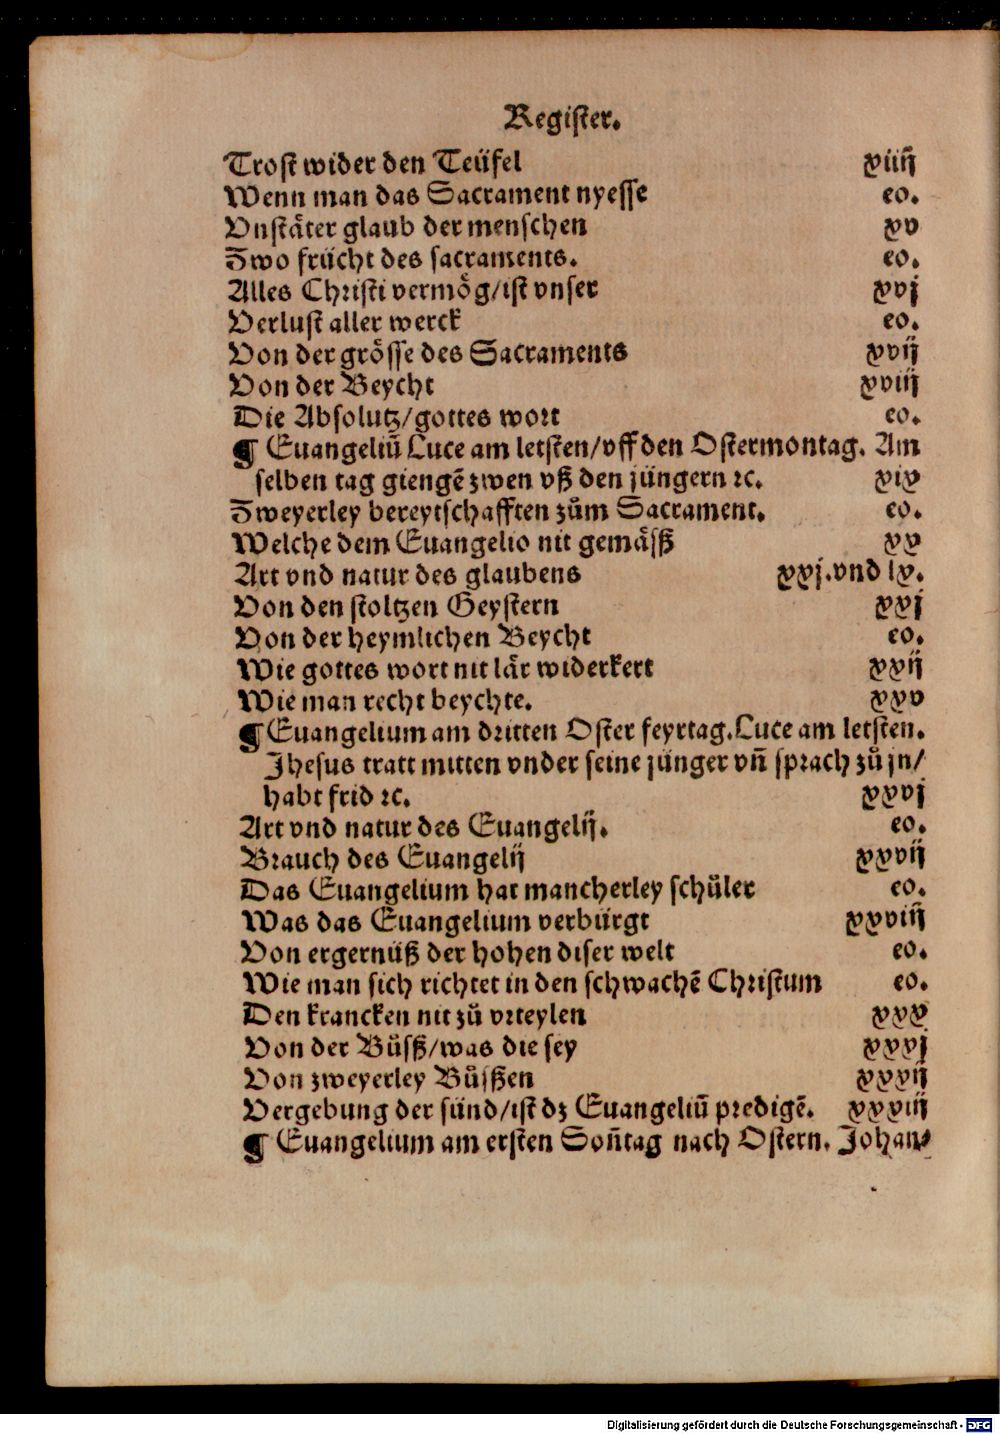 Register.
Trost wider den Teüfel xiiij
Wenn man das Sacrament nyesse eo.
Vnstäter glaub der menschen xv
Zwo frücht des sacraments. eo.
Alles Christi vermög/ist vnser xvj
Verlust aller werck eo.
Von der grösse des Sacraments xvij
Von der Beycht xviij
Die Absolutz/gottes wort eo.
¶ Euangeliū Luce am letsten/vff den Ostermontag. Am
selben tag giengē zwen vß den jüngern ꝛc. xix
Zweyerley bereytschafften zům Sacrament. eo.
Welche dem Euangelio nit gemäsß xx
Art vnd natur des glaubens xxj.vnd lx.
Von den stoltzen Geystern xxj
Von der heymlichen Beycht eo.
Wie gottes wort nit lär widerkert xxij
Wie man recht beychte. xxv
¶ Euangelium am dritten Oster feyrtag. Luce am letsten.
Jhesus tratt mitten vnder seine jünger vñ sprach zů jn/
habt frid ꝛc. xxvj
Art vnd natur des Euangelij. eo.
Brauch des Euangelij xxvij
Das Euangelium hat mancherley schüler eo.
Was das Euangelium verbürgt xxviiij
Von ergernüß der hohen diser welt eo.
Wie man sich richtet in den schwachē Christum eo.
Den krancken nit zů vrteylen xxx
Von der Bůsß/was die sey xxxj
Von zweyerley Bůsßen xxxij
Vergebung der sünd/ist dz Euangeliū predigē. xxxiij
¶ Euangelium am ersten Soñtag nach Ostern. Johan⸗
Digitalisierung gefördert durch die Deutsche Forschungsgemeinschaft - DFG